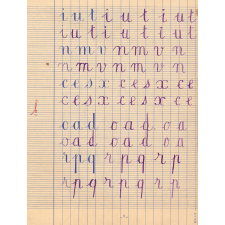 i u t i u t i u t
i u t i u t i u t
n m v n m v n
n m v n m v n
c e s x c e s x c e
c e s x c e s x c e
o a d o a d o a
o a d o a d o a
r p q r p q r p
r p q r p q r p